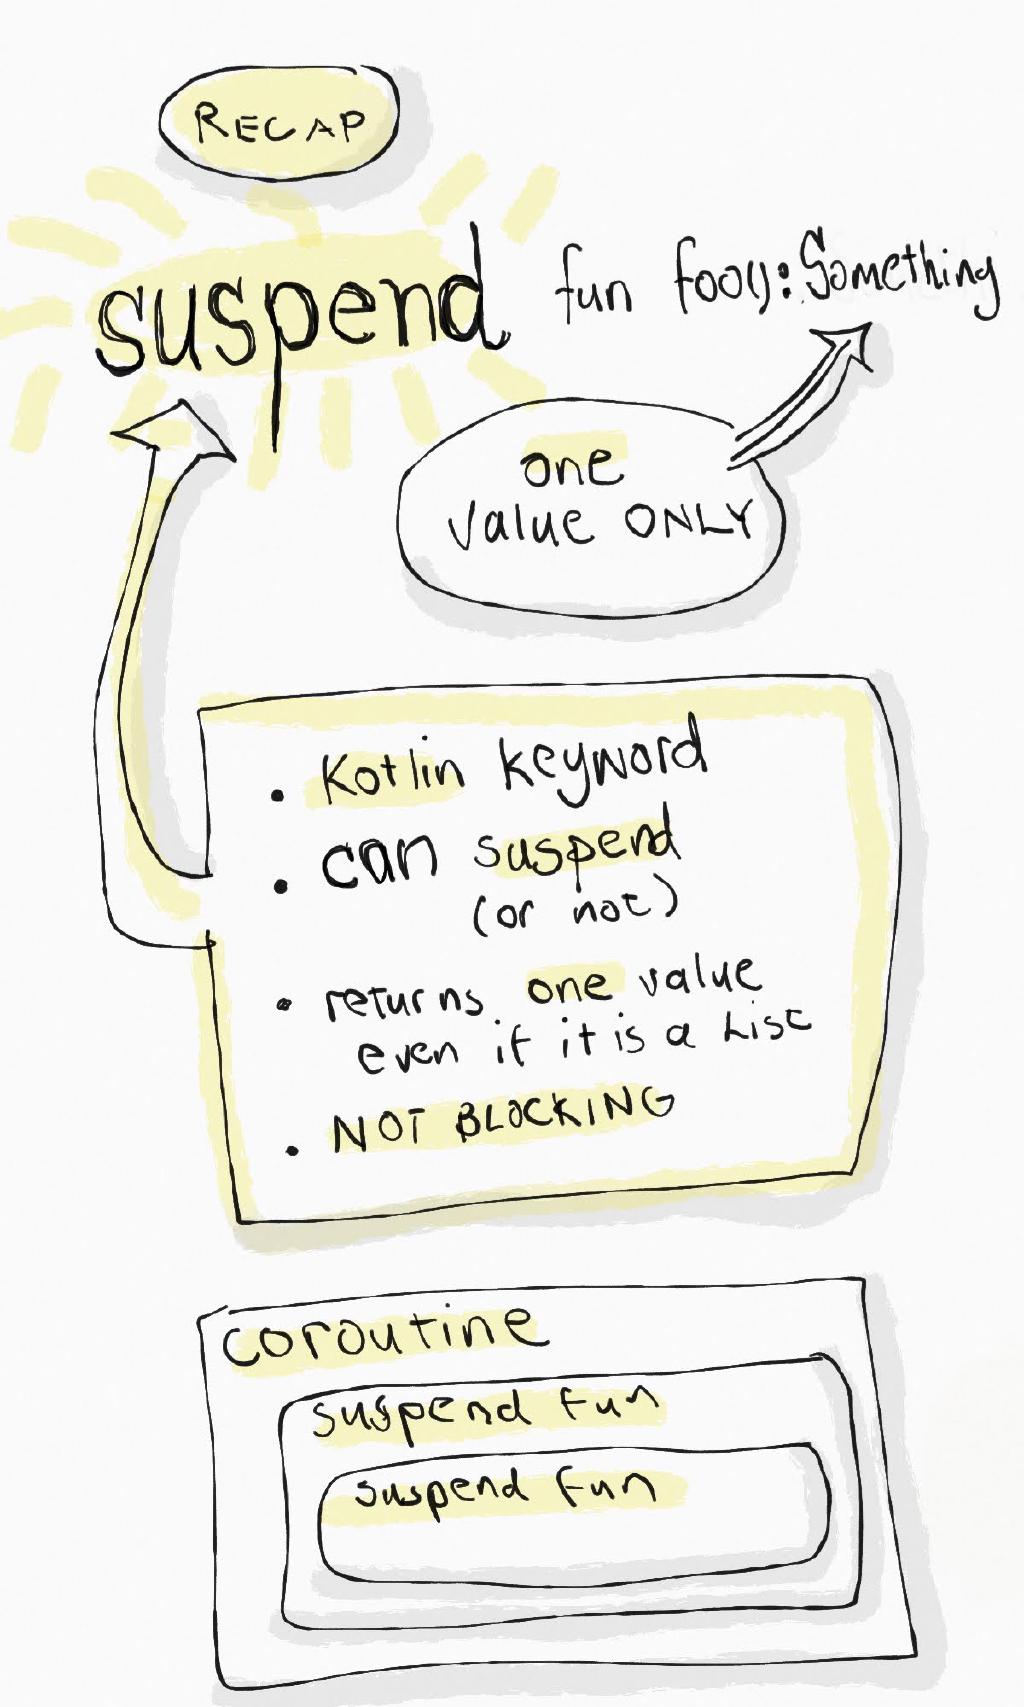 RECAP
suspend fun foo(): Something
one
value ONLY
• Kotlin keyword
• can suspend
(or not)
• returns one value
even if it is a List
• NOT BLOCKING
coroutine
suspend fun
suspend fun